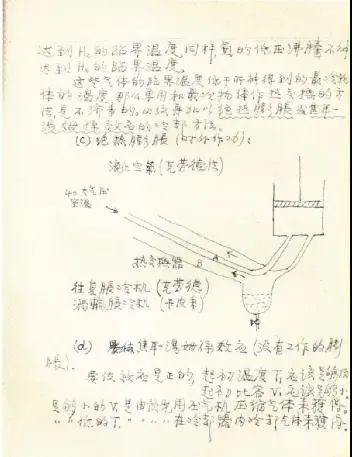 达到 H₂ 的临界温度 同样 的低压沸腾不
达到 H₂ 的临界温度。
这些气体的临界温度低于所能得到的最冷物
体的温度 那么要用和最冷物体作热交换的方
法是不 的。必须再加以绝热膨胀或焦耳—
汤姆孙效应的冷却方法。
(c) 绝热膨胀 (对外作功):
液化空气 (克劳德法)
40 大气压
室温
热交换器 B A
往复膨胀冷机 (克劳德)
涡轮膨胀冷机 (卡皮查)
(d) 焦耳—汤姆孙效应 (没有工作的膨
胀).
要使效应是正的, 起初温度 T₁ 应该足够低
起初比容 V₁ 应该足够小.
足够小的 V₁ 是由预先用压气机压缩气体来获得。
" " 低的 T₁ " " " 在冷却器内冷却气体来获得。